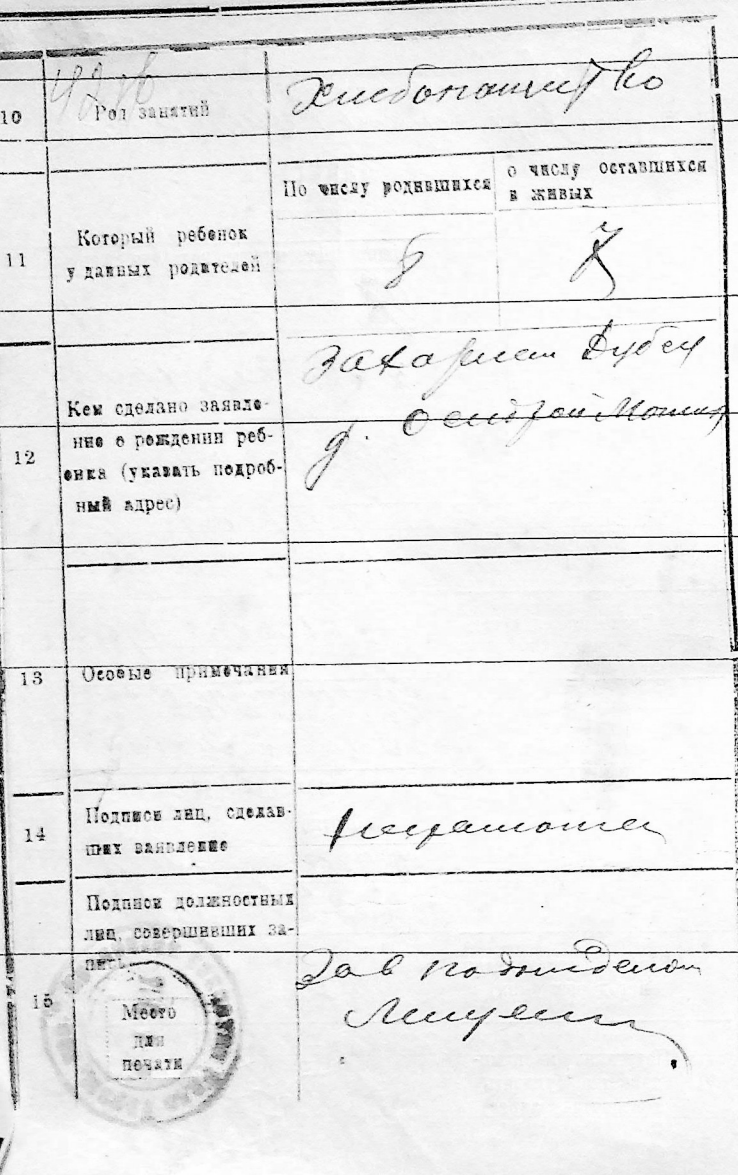 10
Род занятий
Хлебопашество
По числу родившихся
о числу оставшихся
в живых
11
Который ребенок
у данных родителей
8
7
Захарием Дубец
12
Кем сделано заявле-
ние о рождении реб-
енка (указать подроб-
ный адрес)
д.
13
Особые примечания
14
Подписи лиц, сделав-
ших заявление
неграмотен
15
Подписи должностных
лиц, совершивших за-
пись
Зав подотделом
Место
для
печати